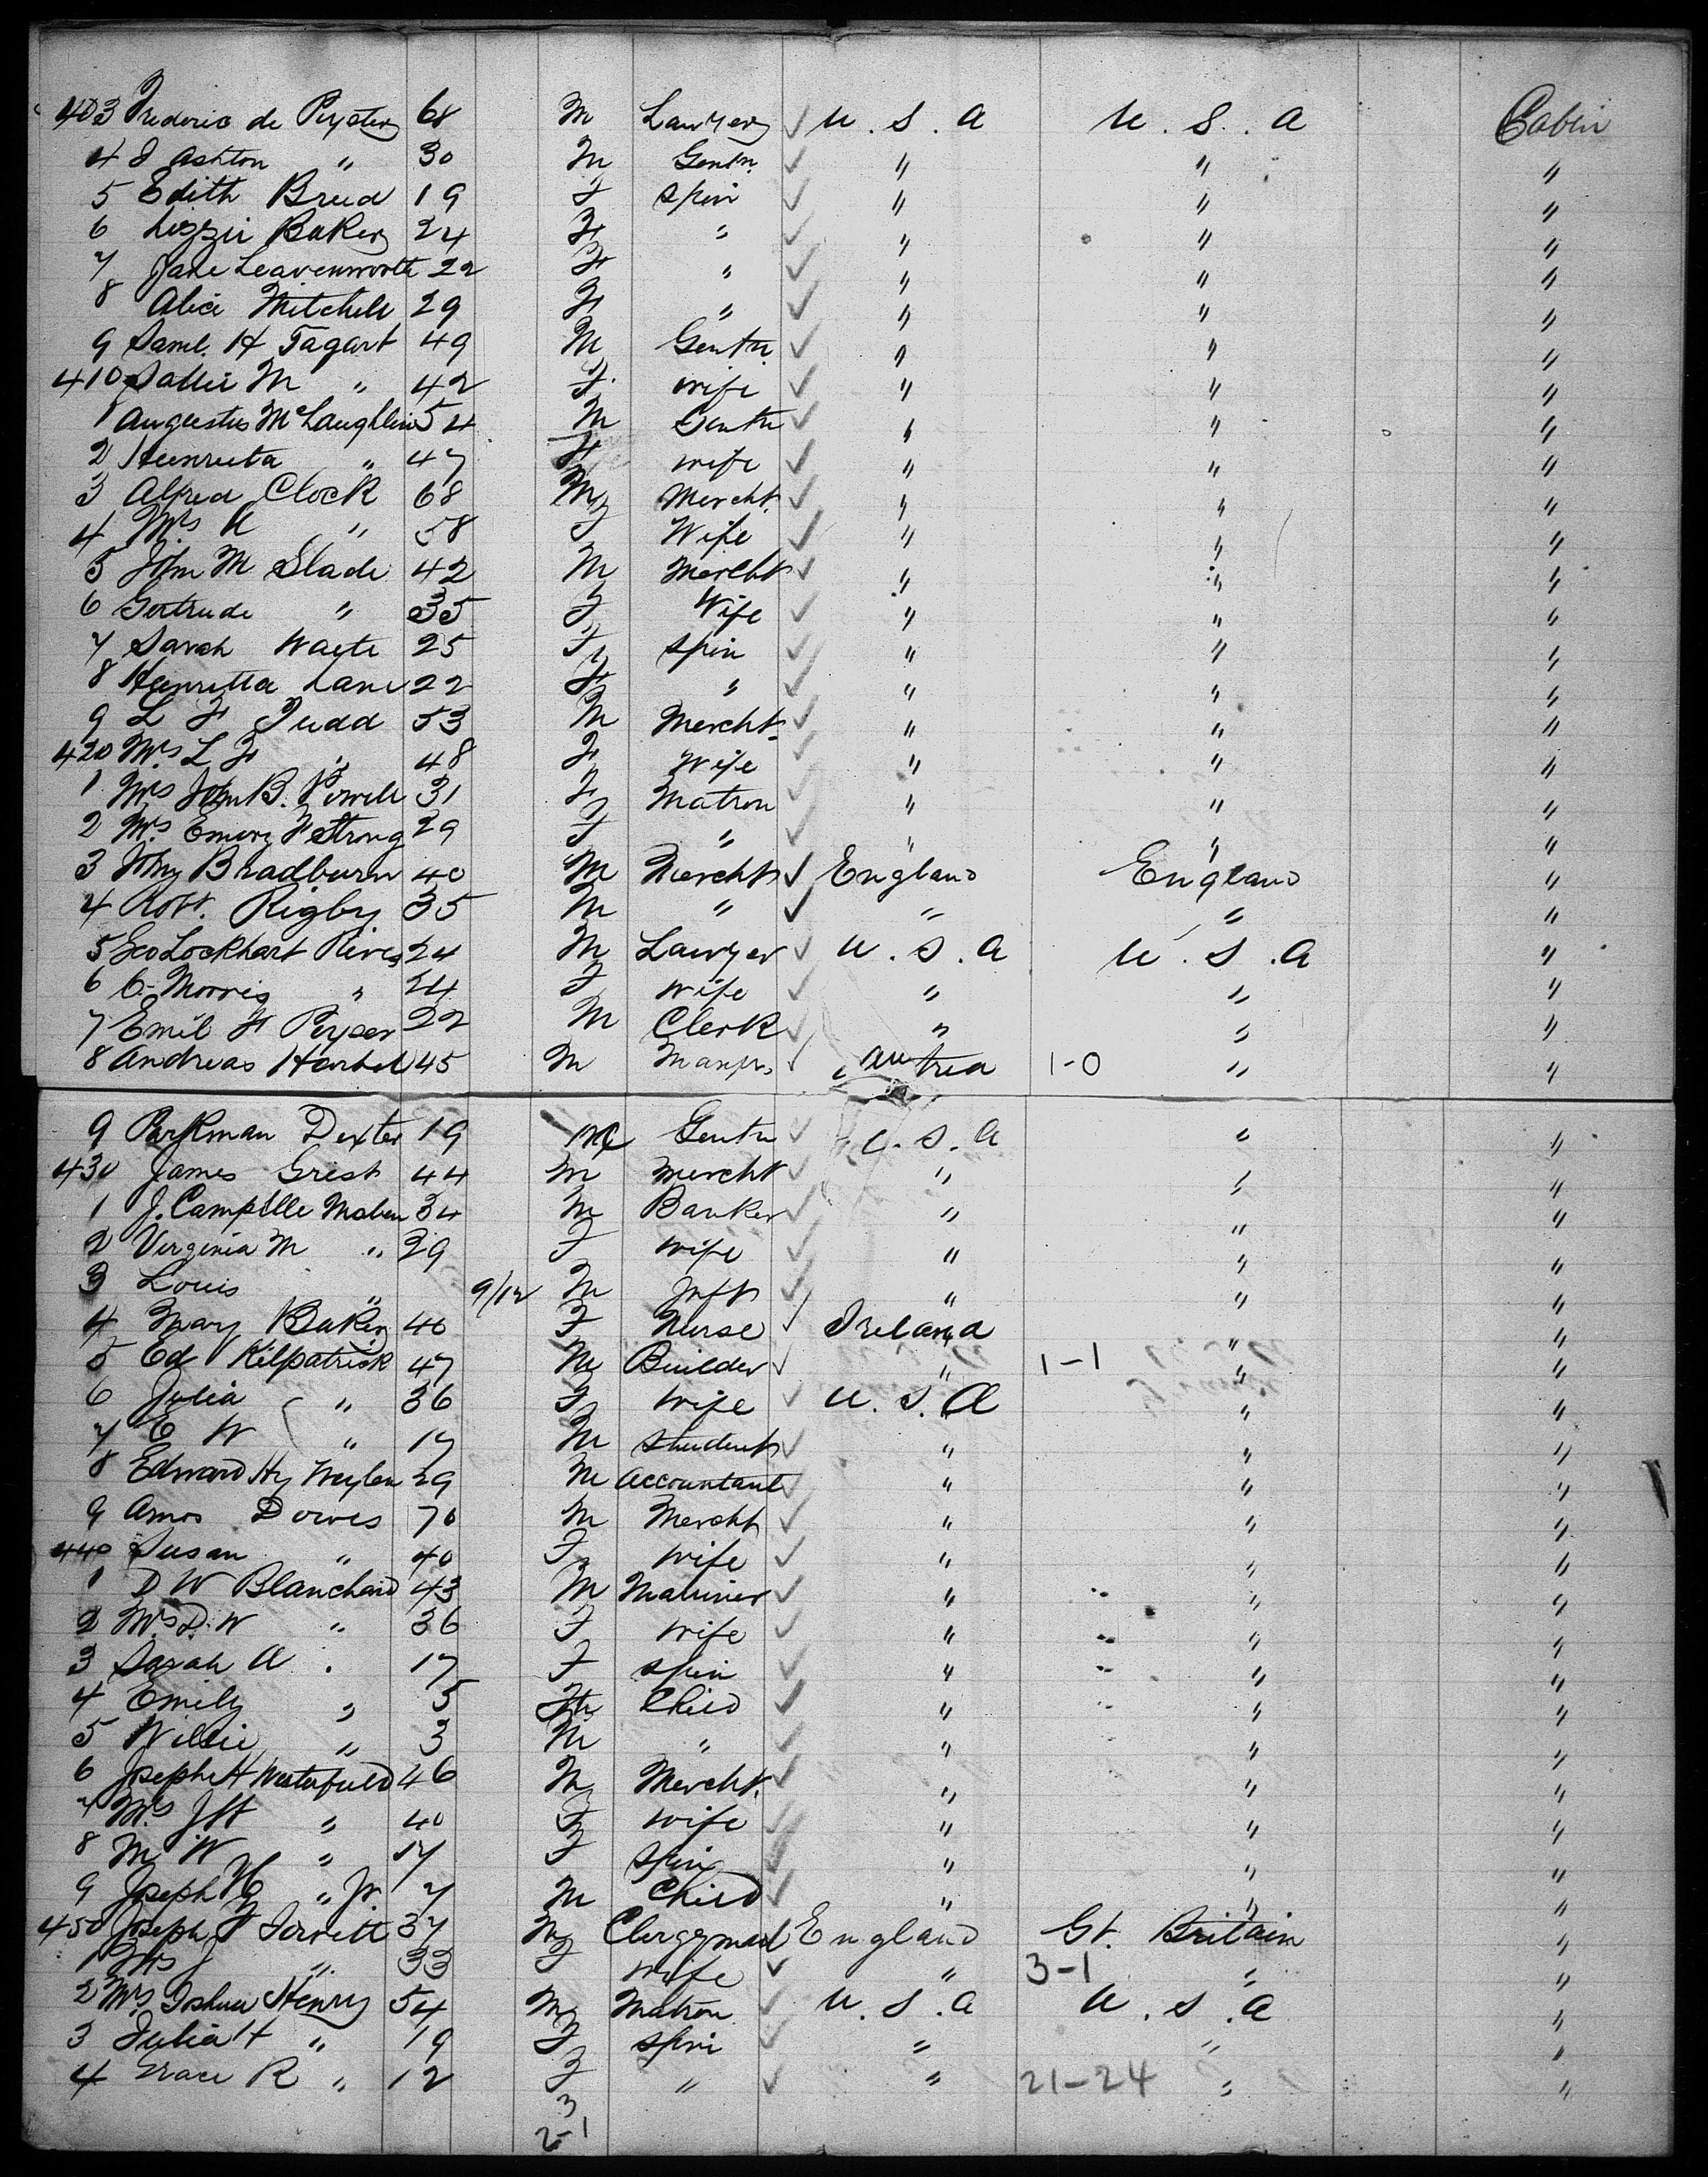 403 Frederic de Peyster 68 M Lawyer ✓ U.S.A U.S.A Cabin
4 J Ashton " 30 M Gentn. ✓ " " "
5 Edith Breed 19 F Spin ✓ " " "
6 Lizzie Baker 24 F " ✓ " " "
7 Jane Leavenworth 22 F " ✓ " " "
8 Alice Mitchell 29 F " ✓ " " "
9 Saml. H Tagart 49 M Gentn. ✓ " " "
410 Sallie M " 42 F. wife ✓ " " "
1 Augustus McLaughlin 54 M Gentn ✓ " " "
2 Henrietta " 47 F wife ✓ " " "
3 Alfred Clock 68 M Mercht. ✓ " " "
4 Mrs A " 58 F Wife ✓ " " "
5 John M Slade 42 M Mercht ✓ " " "
6 Gertrude " 35 F Wife ✓ " " "
7 Sarah Waete 25 F Spin ✓ " " "
8 Henrietta Lane 22 F " ✓ " " "
9 L F Judd 53 M Mercht. ✓ " " "
420 Mrs L F " 48 F Wife ✓ " " "
1 Mrs John B. 31 F Matron ✓ " " "
2 Mrs Emory F Strong 29 F " ✓ " " "
3 Bradburn 40 M Mercht ✓ England England "
4 Robt. Rigby 35 M " ✓ " " "
5 Geo Lockhart Rives 24 M Lawyer ✓ U.S.A U.S.A "
6 C. Morris " 24 F wife ✓ " " "
7 Emil F 22 M Clerk ✓ " " "
8 Andreas 45 M ✓ Austrea 1-0 " "
9 Parkman Dexter 19 M Gentn ✓ U.S.A " "
430 James Grist 44 M Mercht ✓ " " "
1 J. Maben 34 M Banker ✓ " " "
2 Virginia M " 29 F wife ✓ " " "
3 Louis " 9/12 M Inft ✓ " " "
4 Mary Baker 40 F Nurse ✓ Ireland " "
5 Ed Kilpatrick 47 M Builder ✓ " 1-1 " "
6 Julia " 36 F Wife ✓ U.S.A " "
7 E W " 17 M Student ✓ " " "
8 Edward Hy 29 M Accountant ✓ " " "
9 Amos Dowes 70 M Mercht ✓ " " "
440 Susan " 40 F wife ✓ " " "
1 D W Blanchard 43 M Mariner ✓ " " "
2 Mrs D. W " 36 F wife ✓ " " "
3 Sarah A " 17 F Spin ✓ " " "
4 Emily " 5 Child ✓ " " "
5 Willie " 3 M " ✓ " " "
6 Joseph H 46 M Mercht. ✓ " " "
7 Mrs J H " 40 F wife ✓ " " "
8 M W " 17 F Spin ✓ " " "
9 Joseph H " Jr 7 M Child ✓ " " "
450 Joseph F 37 M Clergyman England Gt. Britain "
1 Mrs J " 33 F Wife ✓ " 3-1 " "
2 Mrs Joshua Henry 54 M Matron ✓ U.S.A U.S.A "
3 Julia H " 19 F Spin ✓ " " "
4 Grace R " 12 F " ✓ " 21-24 " "
3
2-1